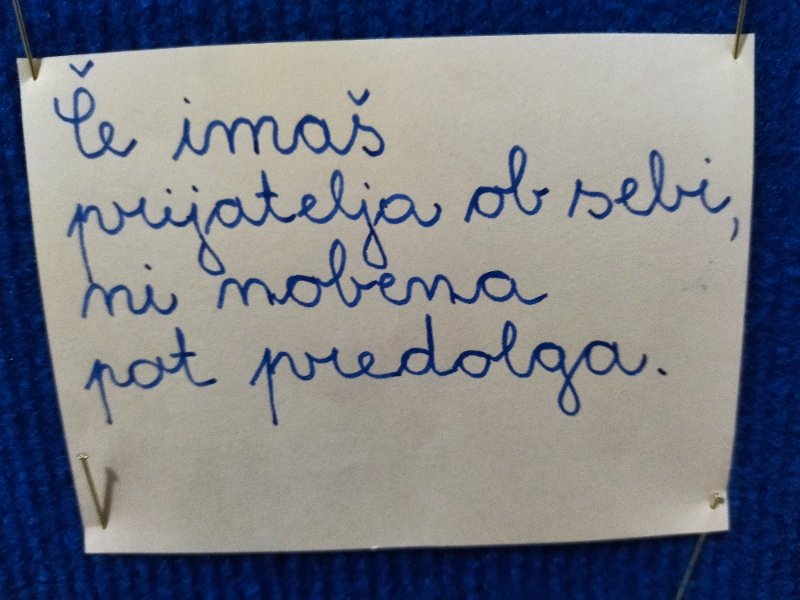 Če imaš
prijatelja ob sebi,
ni nobena
pot predolga.